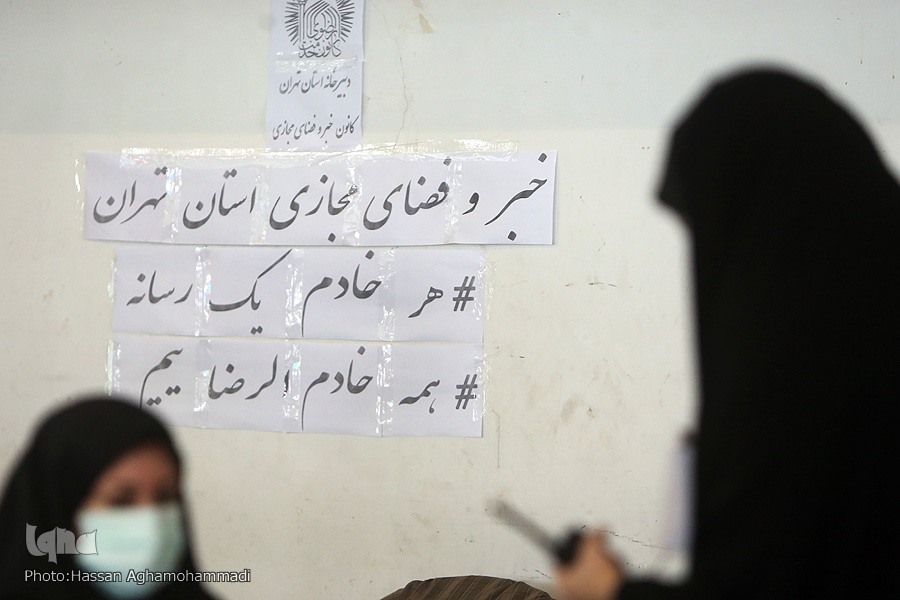 کانون خدمت رضوی
دبیرخانه استان تهران
کانون خبر و فضای مجازی
خبر و فضای مجازی استان تهران
# هر خادم یک رسانه
# همه خادم الرضا ییم
iqna
Photo:Hassan Aghamohammadi